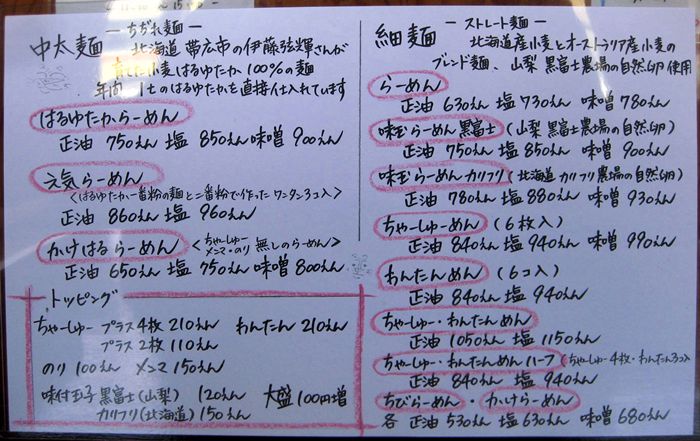 ーちぢれ麺ー
中太麺 北海道 帯広市の伊藤弦輝さんが
育てた小麦はるゆたか100%の麺
年間 1tのはるゆたかを直接仕入れています
はるゆたからーめん
正油 750えん 塩 850えん 味噌 900えん
元気らーめん
<はるゆたか一番粉の麺と二番粉で作ったワンタン3コ入>
正油 860えん 塩 960えん
かけはるらーめん <ちゃーしゅー メンマ・のり 無しのらーめん>
正油 650えん 塩 750えん 味噌 800えん
トッピング
ちゃーしゅー プラス4枚 210えん わんたん 210えん
プラス2枚 110えん
のり 100えん メンマ 150えん
味付玉子 黒富士(山梨) 120えん 大盛 100円増
カリフリ(北海道) 150えん
ーストレート麺ー
細麺 北海道産小麦とオーストラリア産小麦の
ブレンド麺、山梨 黒富士農場の自然卵使用
らーめん
正油 630えん 塩 730えん 味噌 780えん
味玉らーめん 黒富士 (山梨 黒富士農場の自然卵)
正油 750えん 塩 850えん 味噌 900えん
味玉らーめん カリフリ (北海道 カリフリ農場の自然卵)
正油 780えん 塩 880えん 味噌 930えん
ちゃーしゅーめん (6枚入)
正油 840えん 塩 940えん 味噌 990えん
わんたんめん (6コ入)
正油 840えん 塩 940えん
ちゃーしゅー・わんたんめん
正油 1050えん 塩 1150えん
ちゃーしゅー・わんたんめん ハーフ (ちゃーしゅー4枚・わんたん3コ)
正油 840えん 塩 940えん
ちびらーめん・かけらーめん
各 正油 530えん 塩 630えん 味噌 680えん